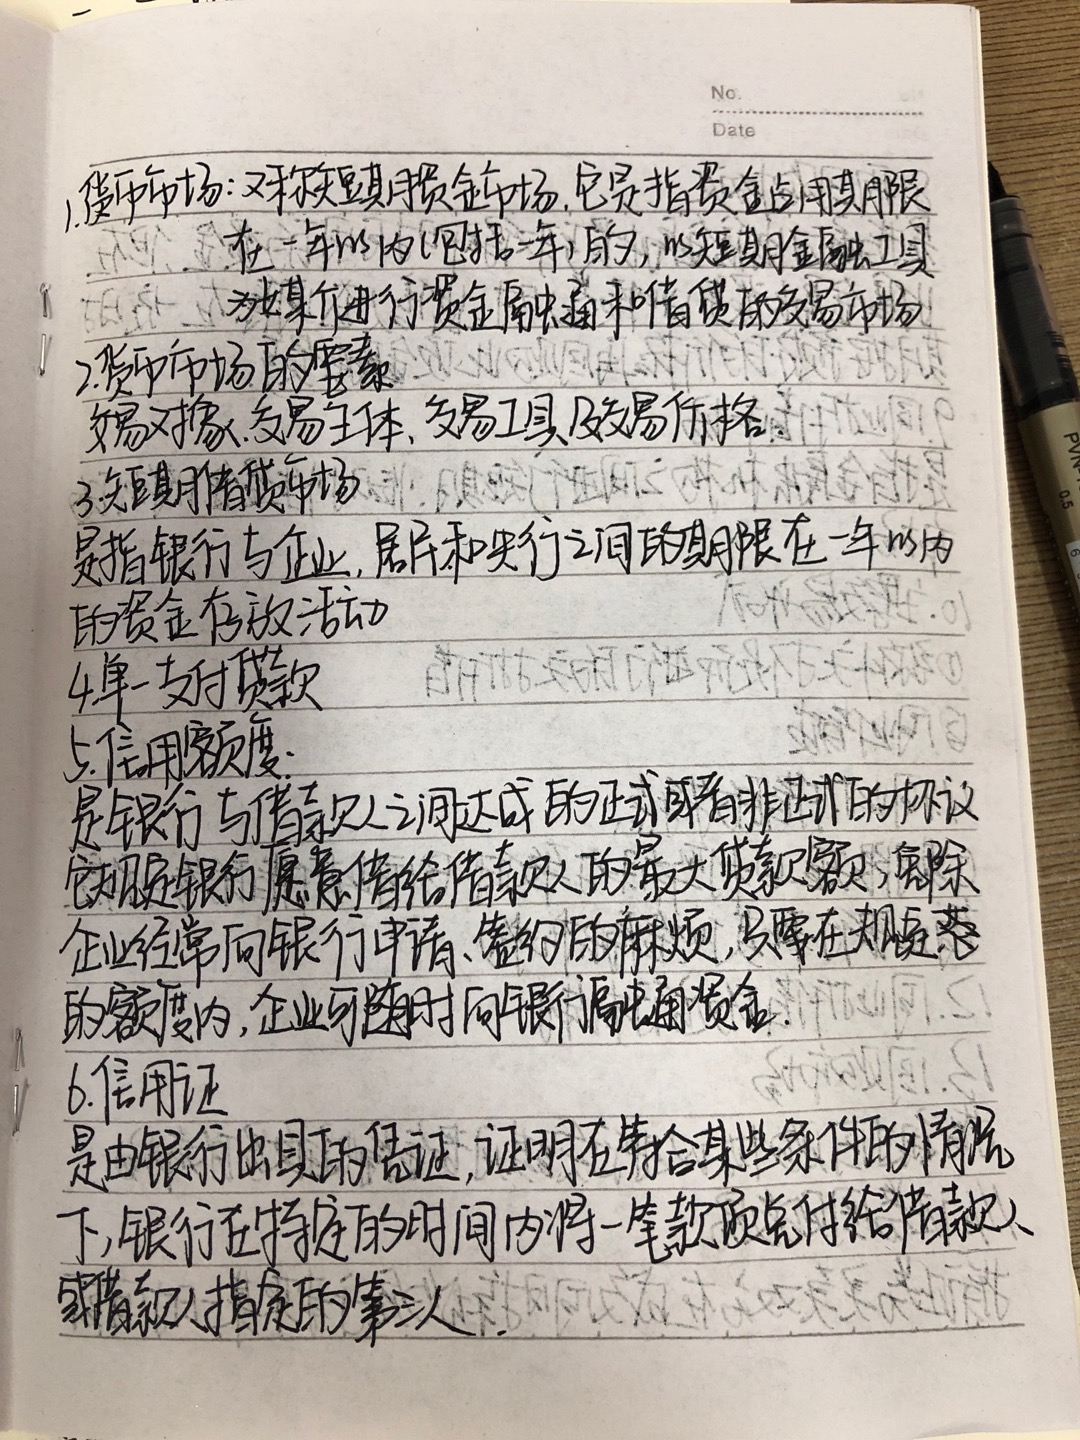 No.
Date
1.货币市场:又称短期资金市场,它是指资金占用期限
在一年以内(包括一年)的,以短期金融工具
为媒介进行资金融通和借贷的交易市场
2.货币市场的要素
交易对象、交易主体、交易工具及交易价格.
3.短期借贷市场
是指银行与企业,居民和央行之间的期限在一年以内
的资金存放活动
4.单一支付贷款
5.信用额度:
是银行与借款人之间达成的正式或者非正式的协议
它规定银行愿意借给借款人的最大贷款额,免除
企业经常向银行申请、签约的麻烦,只要在规定
的额度内,企业可随时向银行融通资金.
6.信用证
是由银行出具的凭证,证明在符合某些条件的情况
下,银行在特定的时间内将一笔款项兑付给借款人
或借款人指定的第三人.
PVN
0.5